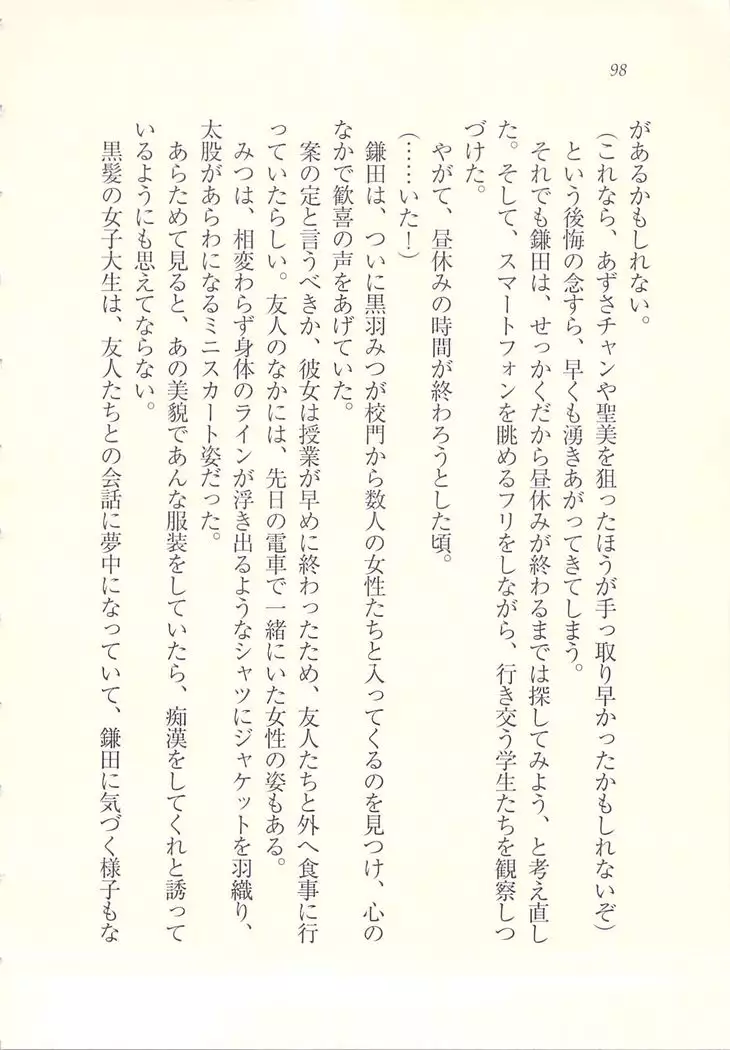 98
があるかもしれない。
（これなら、あずさチャンや聖美を狙ったほうが手っ取り早かったかもしれないぞ）
という後悔の念すら、早くも湧きあがってきてしまう。
それでも鎌田は、せっかくだから昼休みが終わるまでは探してみよう、と考え直し
た。そして、スマートフォンを眺めるフリをしながら、行き交う学生たちを観察しつ
づけた。
やがて、昼休みの時間が終わろうとした頃。
（……いた！）
鎌田は、ついに黒羽みつが校門から数人の女性たちと入ってくるのを見つけ、心の
なかで歓喜の声をあげていた。
案の定と言うべきか、彼女は授業が早めに終わったため、友人たちと外へ食事に行
っていたらしい。友人のなかには、先日の電車で一緒にいた女性の姿もある。
みつは、相変わらず身体のラインが浮き出るようなシャツにジャケットを羽織り、
太股があらわになるミニスカート姿だった。
あらためて見ると、あの美貌であんな服装をしていたら、痴漢をしてくれと誘って
いるようにも思えてならない。
黒髪の女子大生は、友人たちとの会話に夢中になっていて、鎌田に気づく様子もな